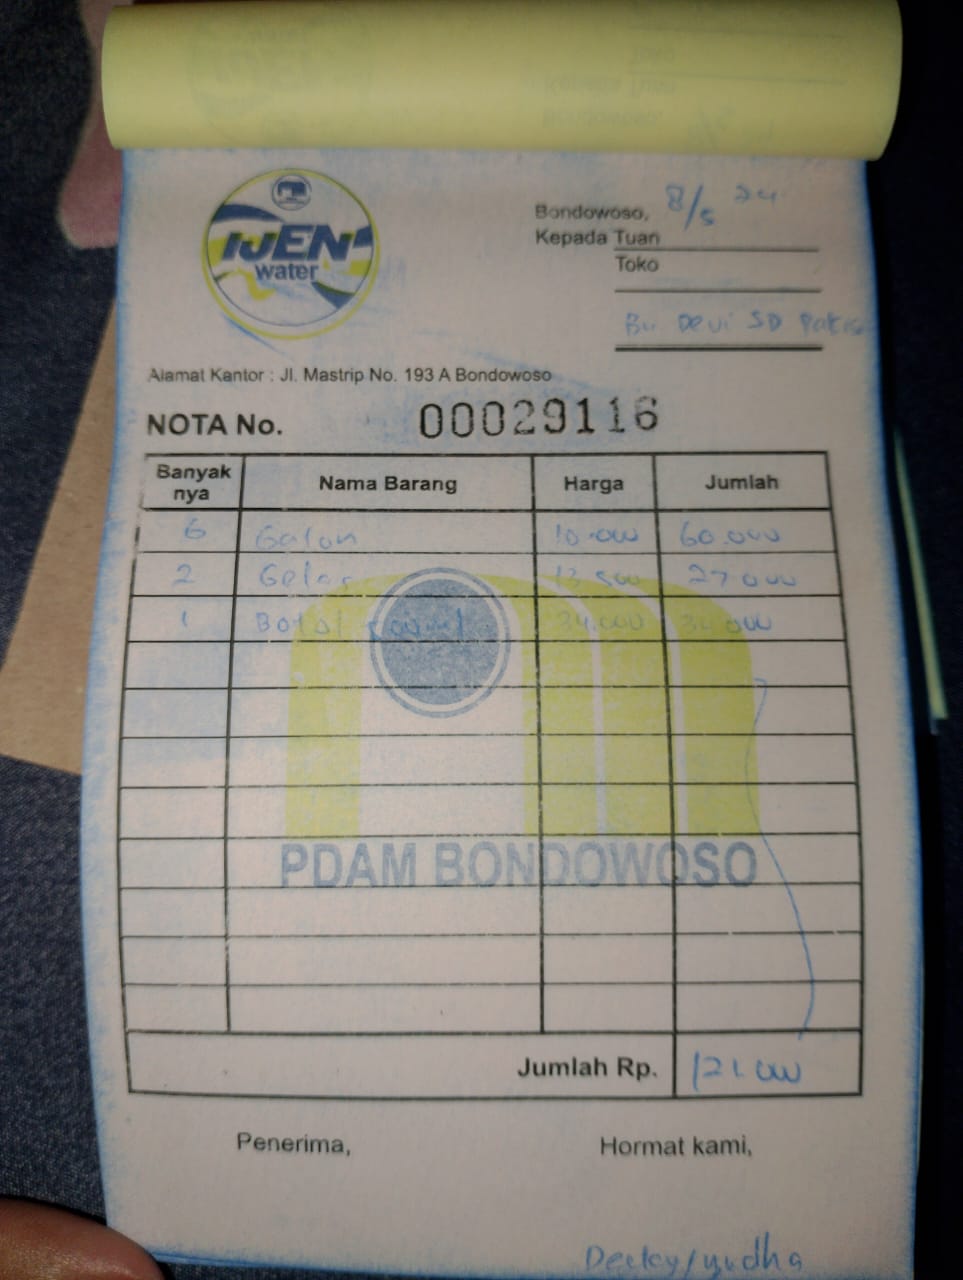 IJEN
water
Bondowoso, 8/5 24
Kepada Tuan
Toko
Bu Devi SD Pakis
Alamat Kantor : Jl. Mastrip No. 193 A Bondowoso
NOTA No. 00029116
Banyak nya Nama Barang Harga Jumlah
6 Galon 10.000 60.000
2 Gelas 13.500 27.000
1 Botol 34.000 34.000
PDAM BONDOWOSO
Jumlah Rp. 121.000
Penerima, Hormat kami,
Decky/yudha